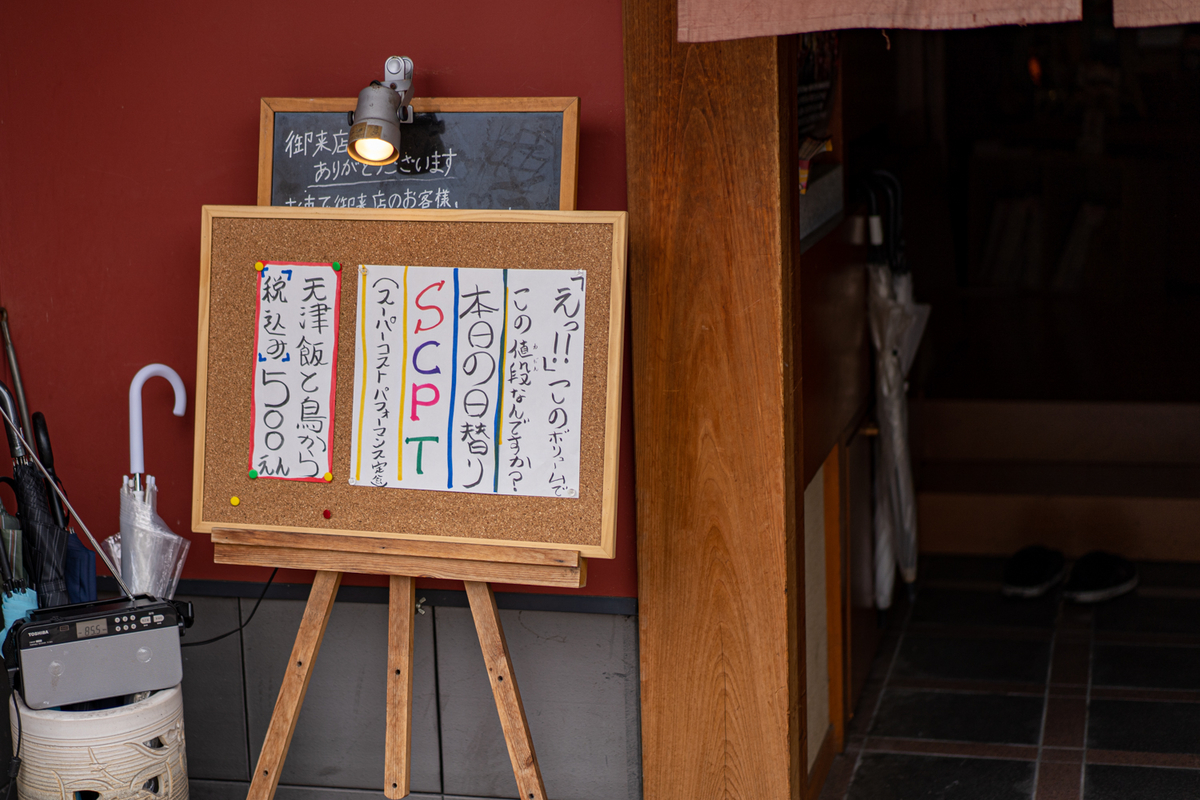 御来店
ありがとうございます
御来店のお客様、
「えっ!!このボリュームで
この値段なんですか?」
ねだん
本日の日替り
SCPT
(スーパーコストパフォーマンス定食)
天津飯と鳥から
「税込み」500えん
TOSHIBA
855